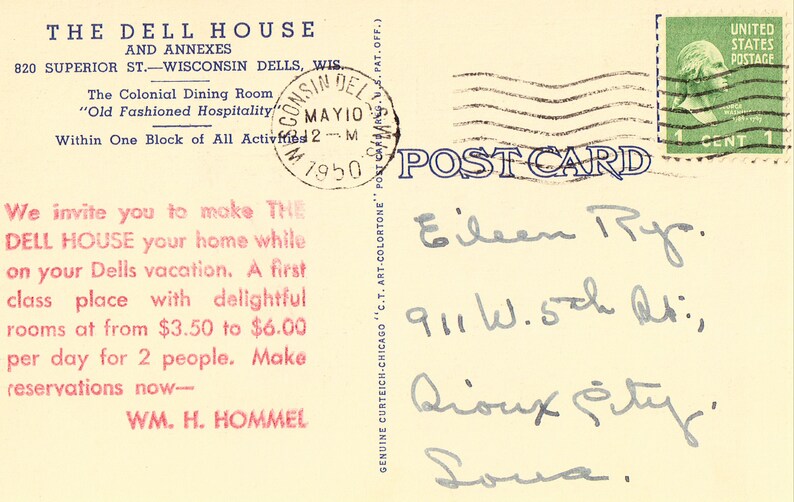 THE DELL HOUSE
AND ANNEXES
820 SUPERIOR ST.—WISCONSIN DELLS, WIS.
The Colonial Dining Room
"Old Fashioned Hospitality"
Within One Block of All Activities
WISCONSIN DELLS WIS.
MAY 10
12 – M
1950
UNITED
STATES
POSTAGE
GEORGE
WASHINGTON
1789-1797
1 CENT 1
POST CARD
We invite you to make THE
DELL HOUSE your home while
on your Dells vacation. A first
class place with delightful
rooms at from $3.50 to $6.00
per day for 2 people. Make
reservations now—
WM. H. HOMMEL
GENUINE CURTEICH-CHICAGO "C.T. ART-COLORTONE" POST CARD (REG. U.S. PAT. OFF.)
Eileen Ry.
911 W. 5th St.,
Sioux City,
Iowa.